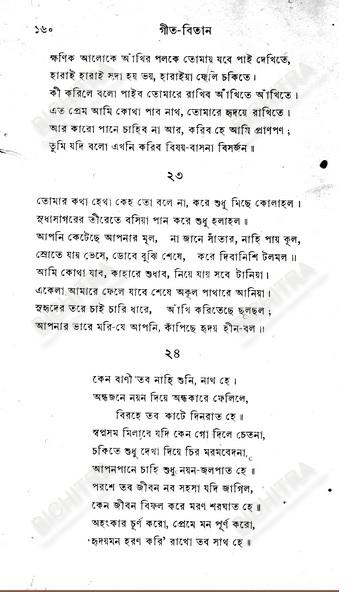 ১৬০ গীত-বিতান
ক্ষণিক আলোকে আঁখির পলকে তোমায় যবে পাই দেখিতে,
হারাই হারাই সদা হয় ভয়, হারাইয়া ফেলি চকিতে।
কী করিলে বলো পাইব তোমারে রাখিব আঁখিতে আঁখিতে।
এত প্রেম আমি কোথা পাব নাথ, তোমারে হৃদয়ে রাখিতে।
আর কারো পানে চাহিব না আর, করিব হে আমি প্রাণপণ ;
তুমি যদি বলো এখনি করিব বিষয়-বাসনা বিসর্জন॥
২৩
তোমার কথা হেথা কেহ তো বলে না, করে শুধু মিছে কোলাহল।
সুধাসাগরের তীরেতে বসিয়া পান করে শুধু হলাহল॥
আপনি কেটেছে আপনার মূল, না জানে সাঁতার, নাহি পায় কূল,
স্রোতে যায় ভেসে, ডোবে বুঝি শেষে, করে দিবানিশি টলমল॥
আমি কোথা যাব, কাহারে শুধাব, নিয়ে যায় সবে টানিয়া।
একেলা আমারে ফেলে যাবে শেষে অকূল পাথারে আনিয়া।
সুহৃদের তরে চাই চারি ধারে, আঁখি করিতেছে ছলছল ;
আপনার ভারে মরি-যে আপনি, কাঁপিছে হৃদয় হীন-বল॥
২৪
কেন বাণী তব নাহি শুনি, নাথ হে।
অন্ধজনে নয়ন দিয়ে অন্ধকারে ফেলিলে,
বিরহে তব কাটে দিনরাত হে॥
স্বপ্নসম মিলাবে যদি কেন গো দিলে চেতনা,
চকিতে শুধু দেখা দিয়ে চির মরমবেদনা,
আপনপানে চাহি শুধু নয়ন-জলপাত হে॥
পরশে তব জীবন নব সহসা যদি জাগিল,
কেন জীবন বিফল করে মরণ শরঘাত হে॥
অহংকার চূর্ণ করো, প্রেমে মন পূর্ণ করো,
হৃদয়মন হরণ করি' রাখো তব সাথ হে॥
BICHITRA